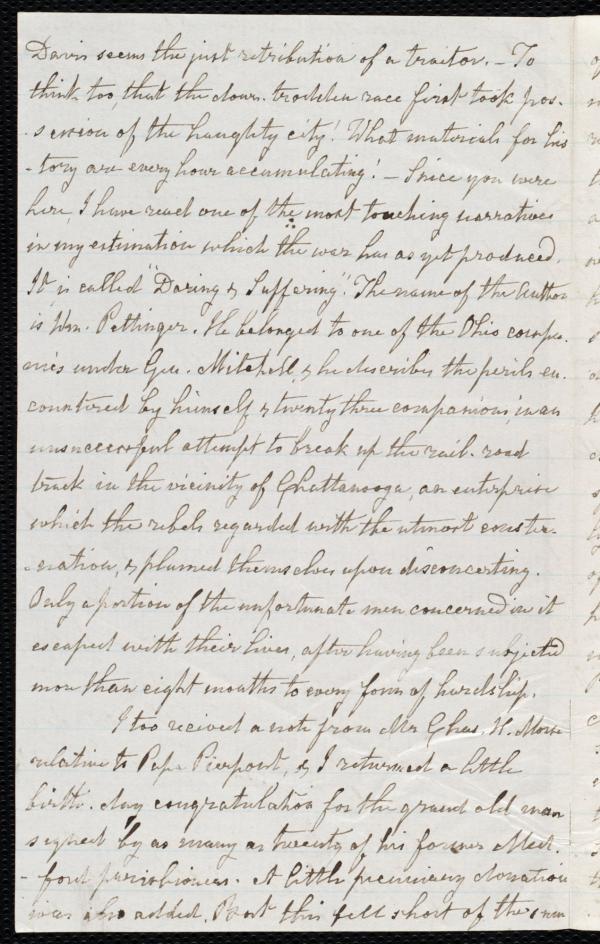 Davis seems the just retribution of a traitor. – To
think, too, that the down-trodden race first took pos-
-session of the haughty city! What materials for his
-tory are every hour accumulating! – Since you were
here, I have read one of the most touching narratives
in my estimation which the war has as yet produced.
It is called "Daring & Suffering". The name of the Author
is Wm. Pettinger. He belonged to one of the Ohio compa-
nies under Gen. Mitchell, & he describes the perils en-
countered by himself & twenty three companions, in an
unsuccessful attempt to break up the rail-road
track in the vicinity of Chattanooga, an enterprise
which the rebels regarded with the utmost conster-
-nation, & plumed themselves upon disconcerting.
Only a portion of the unfortunate men concerned in it
escaped with their lives, after having been subjected
more than eight months to every form of hardship.
I too recieved a note from Mr Chas. H. Morse
relative to Papa Pierpont, & I returned a little
birth-day congratulation for the grand old man
signed by as many as twenty of his former Med-
-ford parishioners. A little pecuniary donation
was also added. But this fell short of the sum